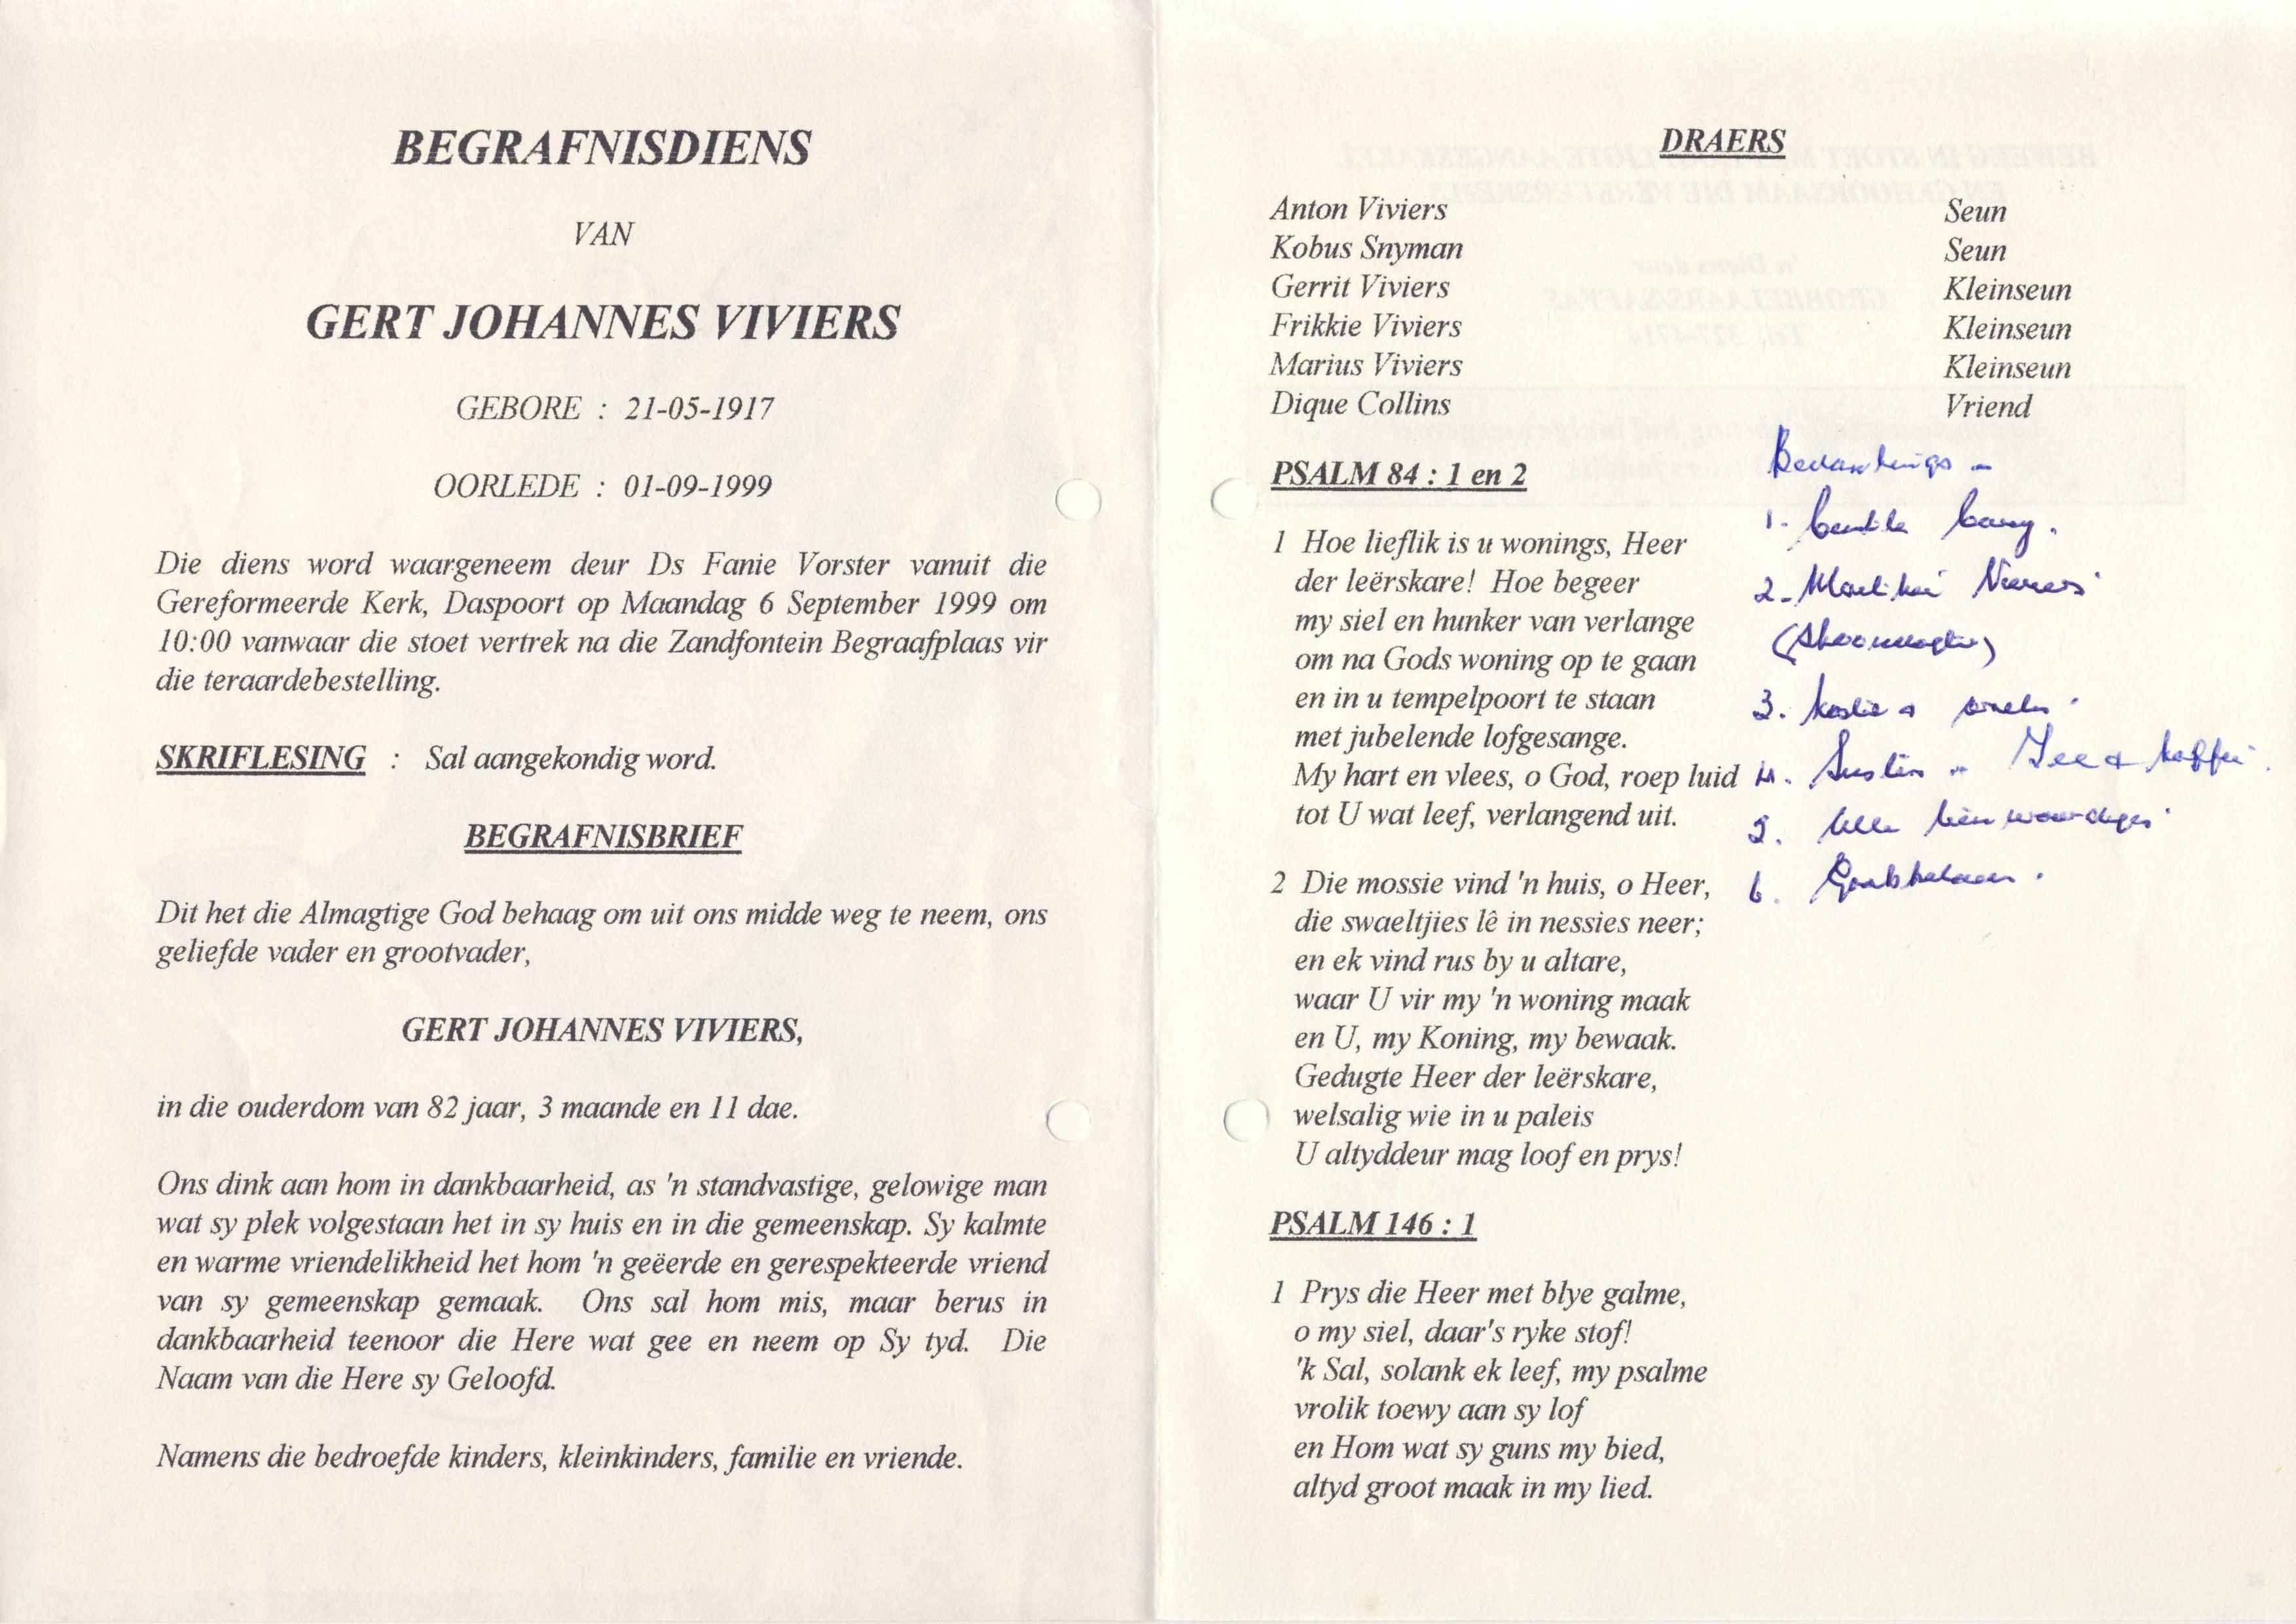 BEGRAFNISDIENS
VAN
GERT JOHANNES VIVIERS
GEBORE : 21-05-1917
OORLEDE : 01-09-1999
Die diens word waargeneem deur Ds Fanie Vorster vanuit die
Gereformeerde Kerk, Daspoort op Maandag 6 September 1999 om
10:00 vanwaar die stoet vertrek na die Zandfontein Begraafplaas vir
die teraardebestelling.
SKRIFLESING : Sal aangekondig word.
BEGRAFNISBRIEF
Dit het die Almagtige God behaag om uit ons midde weg te neem, ons
geliefde vader en grootvader,
GERT JOHANNES VIVIERS,
in die ouderdom van 82 jaar, 3 maande en 11 dae.
Ons dink aan hom in dankbaarheid, as 'n standvastige, gelowige man
wat sy plek volgestaan het in sy huis en in die gemeenskap. Sy kalmte
en warme vriendelikheid het hom 'n geëerde en gerespekteerde vriend
van sy gemeenskap gemaak. Ons sal hom mis, maar berus in
dankbaarheid teenoor die Here wat gee en neem op Sy tyd. Die
Naam van die Here sy Geloofd.
Namens die bedroefde kinders, kleinkinders, familie en vriende.
DRAERS
Anton Viviers Seun
Kobus Snyman Seun
Gerrit Viviers Kleinseun
Frikkie Viviers Kleinseun
Marius Viviers Kleinseun
Dique Collins Vriend
PSALM 84 : 1 en 2
1 Hoe lieflik is u wonings, Heer
der leërskare! Hoe begeer
my siel en hunker van verlange
om na Gods woning op te gaan
en in u tempelpoort te staan
met jubelende lofgesange.
My hart en vlees, o God, roep luid
tot U wat leef, verlangend uit.
2 Die mossie vind 'n huis, o Heer,
die swaeltjies lê in nessies neer;
en ek vind rus by u altare,
waar U vir my 'n woning maak
en U, my Koning, my bewaak.
Gedugte Heer der leërskare,
welsalig wie in u paleis
U altyddeur mag loof en prys!
PSALM 146 : 1
1 Prys die Heer met blye galme,
o my siel, daar's ryke stof!
'k Sal, solank ek leef, my psalme
vrolik toewy aan sy lof
en Hom wat sy guns my bied,
altyd groot maak in my lied.
Bedankings -
1.
2.
(Skoondogter)
3. Koster &
4. Susters - Tee & koffie.
5. Alle teenwoordiges
6. Grobbelaar.